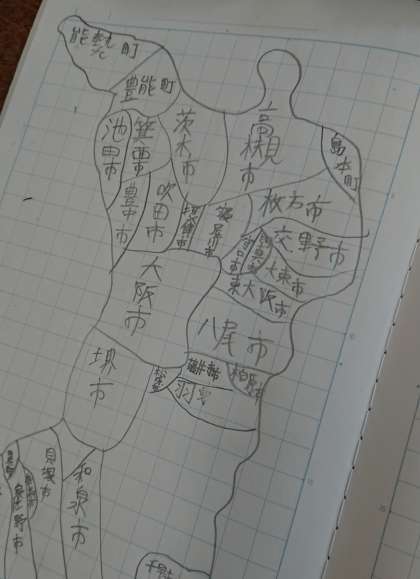 能勢町
豊能町
池田市
箕面市
茨木市
高槻市
島本町
豊中市
吹田市
摂津市
寝屋川市
枚方市
交野市
守口市
大東市
東大阪市
大阪市
八尾市
堺市
松原
藤井寺市
柏原市
羽曳
貝塚市
和泉市
泉佐野市